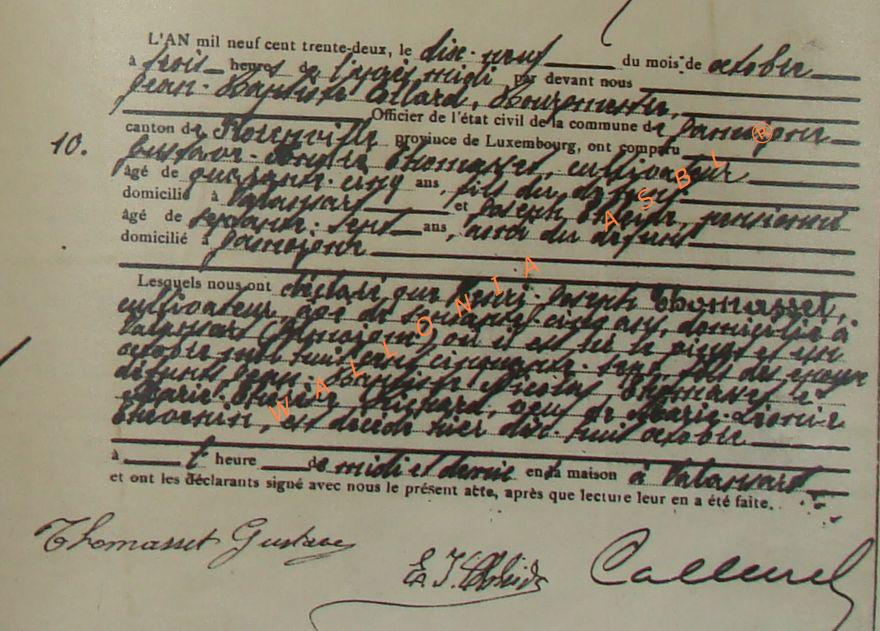 L'AN mil neuf cent trente-deux, le dix-neuf du mois de octobre
à trois heures de l'après-midi par devant nous
Jean-Baptiste Collard, Bourgmestre,
Officier de l'état civil de la commune de Jamoigne
10. canton de Florenville province de Luxembourg, ont comparu
Gustave Thomasset, cultivateur
âgé de quarante-cinq ans, fils du défunt
domicilié à et Joseph pensionné
âgé de septante-sept ans, ami du défunt
domicilié à Jamoigne
Lesquels nous ont déclaré que Henri-Joseph Thomasset,
cultivateur, âgé de septante cinq ans, domicilié à
(Jamoigne) où il est né le vingt et un
octobre mil huit cent cinquante-sept, fils des époux
défunts Jean-Baptiste Nicolas Thomasset et
Marie veuf de Marie-Léonie
est décédé hier dix-huit octobre
à heure de midi et demie en la maison à
et ont les déclarants signé avec nous le présent acte, après que lecture leur en a été faite.
Thomasset Gustave
WALLONIA ASBL ®